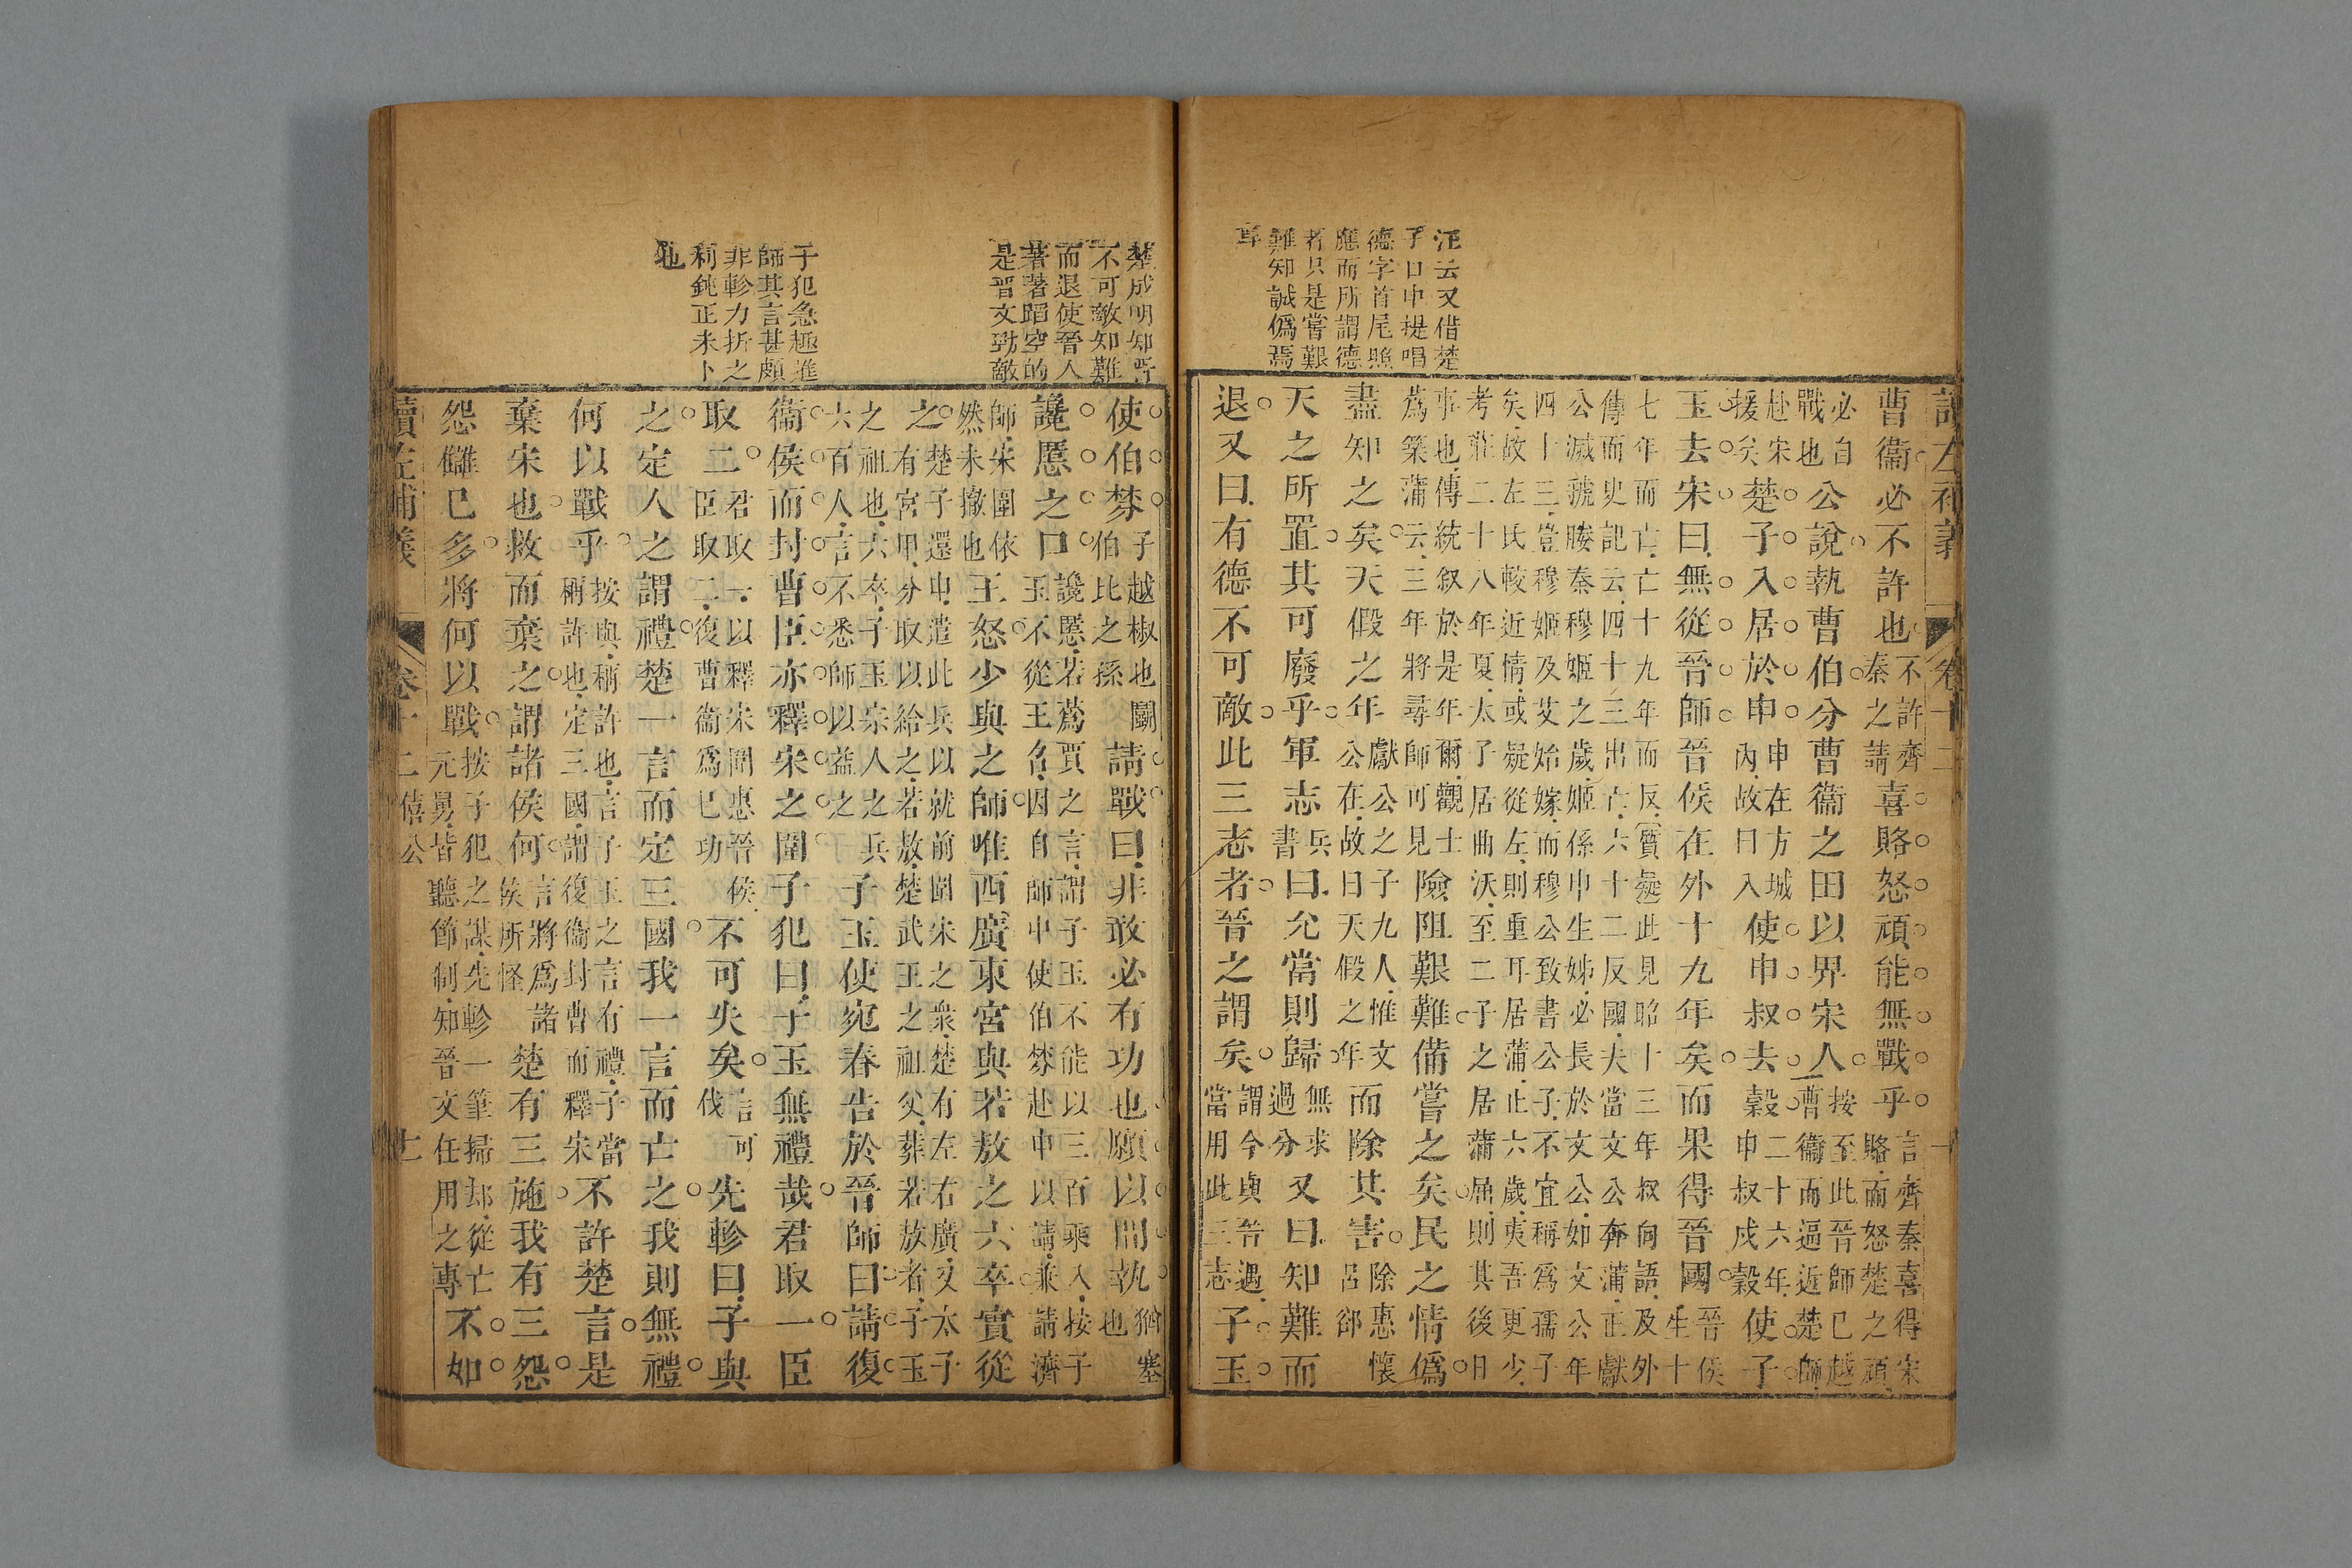 汪云又借楚
子口中提唱
德字首尾照
應而所謂德
者只是嘗艱
難知誠僞焉
耳
曹衞必不許也不許齊秦之請喜賂怒頑能無戰乎言齊秦喜得宋賂而怒楚之頑
必自戰也公說執曹伯分曹衞之田以畀宋人按至此晉師已越曹衞而逼近楚師
赴宋援矣楚子入居於申申在方城內故曰入使申叔去穀二十六年申叔戍穀使子
玉去宋曰無從晉師晉侯在外十九年矣而果得晉國晉侯生十
七年而亡亡十九年而反質疑此見昭十三年叔向語及外
傳而史記云四十三出亡六十二反國夫當文公奔蒲正獻
公滅虢媵秦穆姬之歲姬係申生姊必長於文公如文公年
四十三豈穆姬及艾始嫁而穆公致書公子不宜稱爲孺子
矣故左氏較近情或疑從左則重耳居蒲止六歲夷吾更少
考莊二十八年夏太子居曲沃至二子之居蒲屈則其後日
事也傳統叙於是年爾觀士蒍築蒲云三年將尋師可見險阻艱難備嘗之矣民之情僞
盡知之矣天假之年獻公之子九人惟文公在故曰天假之年而除其害除惠懷呂郤
天之所置其可廢乎軍志兵書曰允當則歸無求過分又曰知難而
退又曰有德不可敵此三志者晉之謂矣謂今與晉遇當用此三志子玉
楚成明知晉
不可敵知難
而退使晉人
著著蹈空的
是晉文勁敵
子犯急趣進
師其言甚頗
非軫力折之
利鈍正未卜
也
使伯棼子越椒也鬭伯比之孫請戰曰非敢必有功也願以間執猶塞也
讒慝之口讒慝若蒍賈之言謂子玉不能以三百乘入按子玉不從王命因自師中使伯棼赴申以請兼請濟
師宋圍依然未撤也王怒少與之師唯西廣東宮與若敖之六卒實從
之楚子還申遣此兵以就前圍宋之衆楚有左右廣又太子有宮甲分取以給之若敖楚武王之祖父葬若敖者子玉
之祖也六卒子玉宗人之兵六百人言不悉師以益之子玉使宛春告於晉師曰請復
衞侯而封曹臣亦釋宋之圍子犯曰子玉無禮哉君取一臣
取二君取一以釋宋圍惠晉侯臣取二復曹衞爲已功不可失矣言可伐先軫曰子與
之定人之謂禮楚一言而定三國我一言而亡之我則無禮
何以戰乎按與稱許也言子玉之言有禮子當稱許也定三國謂復衞封曹而釋宋不許楚言是
棄宋也救而棄之謂諸侯何言將爲諸侯所怪楚有三施我有三怨
怨讎已多將何以戰按子犯之謀先軫一筆掃却從亡元舅皆聽節制知晉文任用之專不如
讀左補義 卷十二 僖公 十一